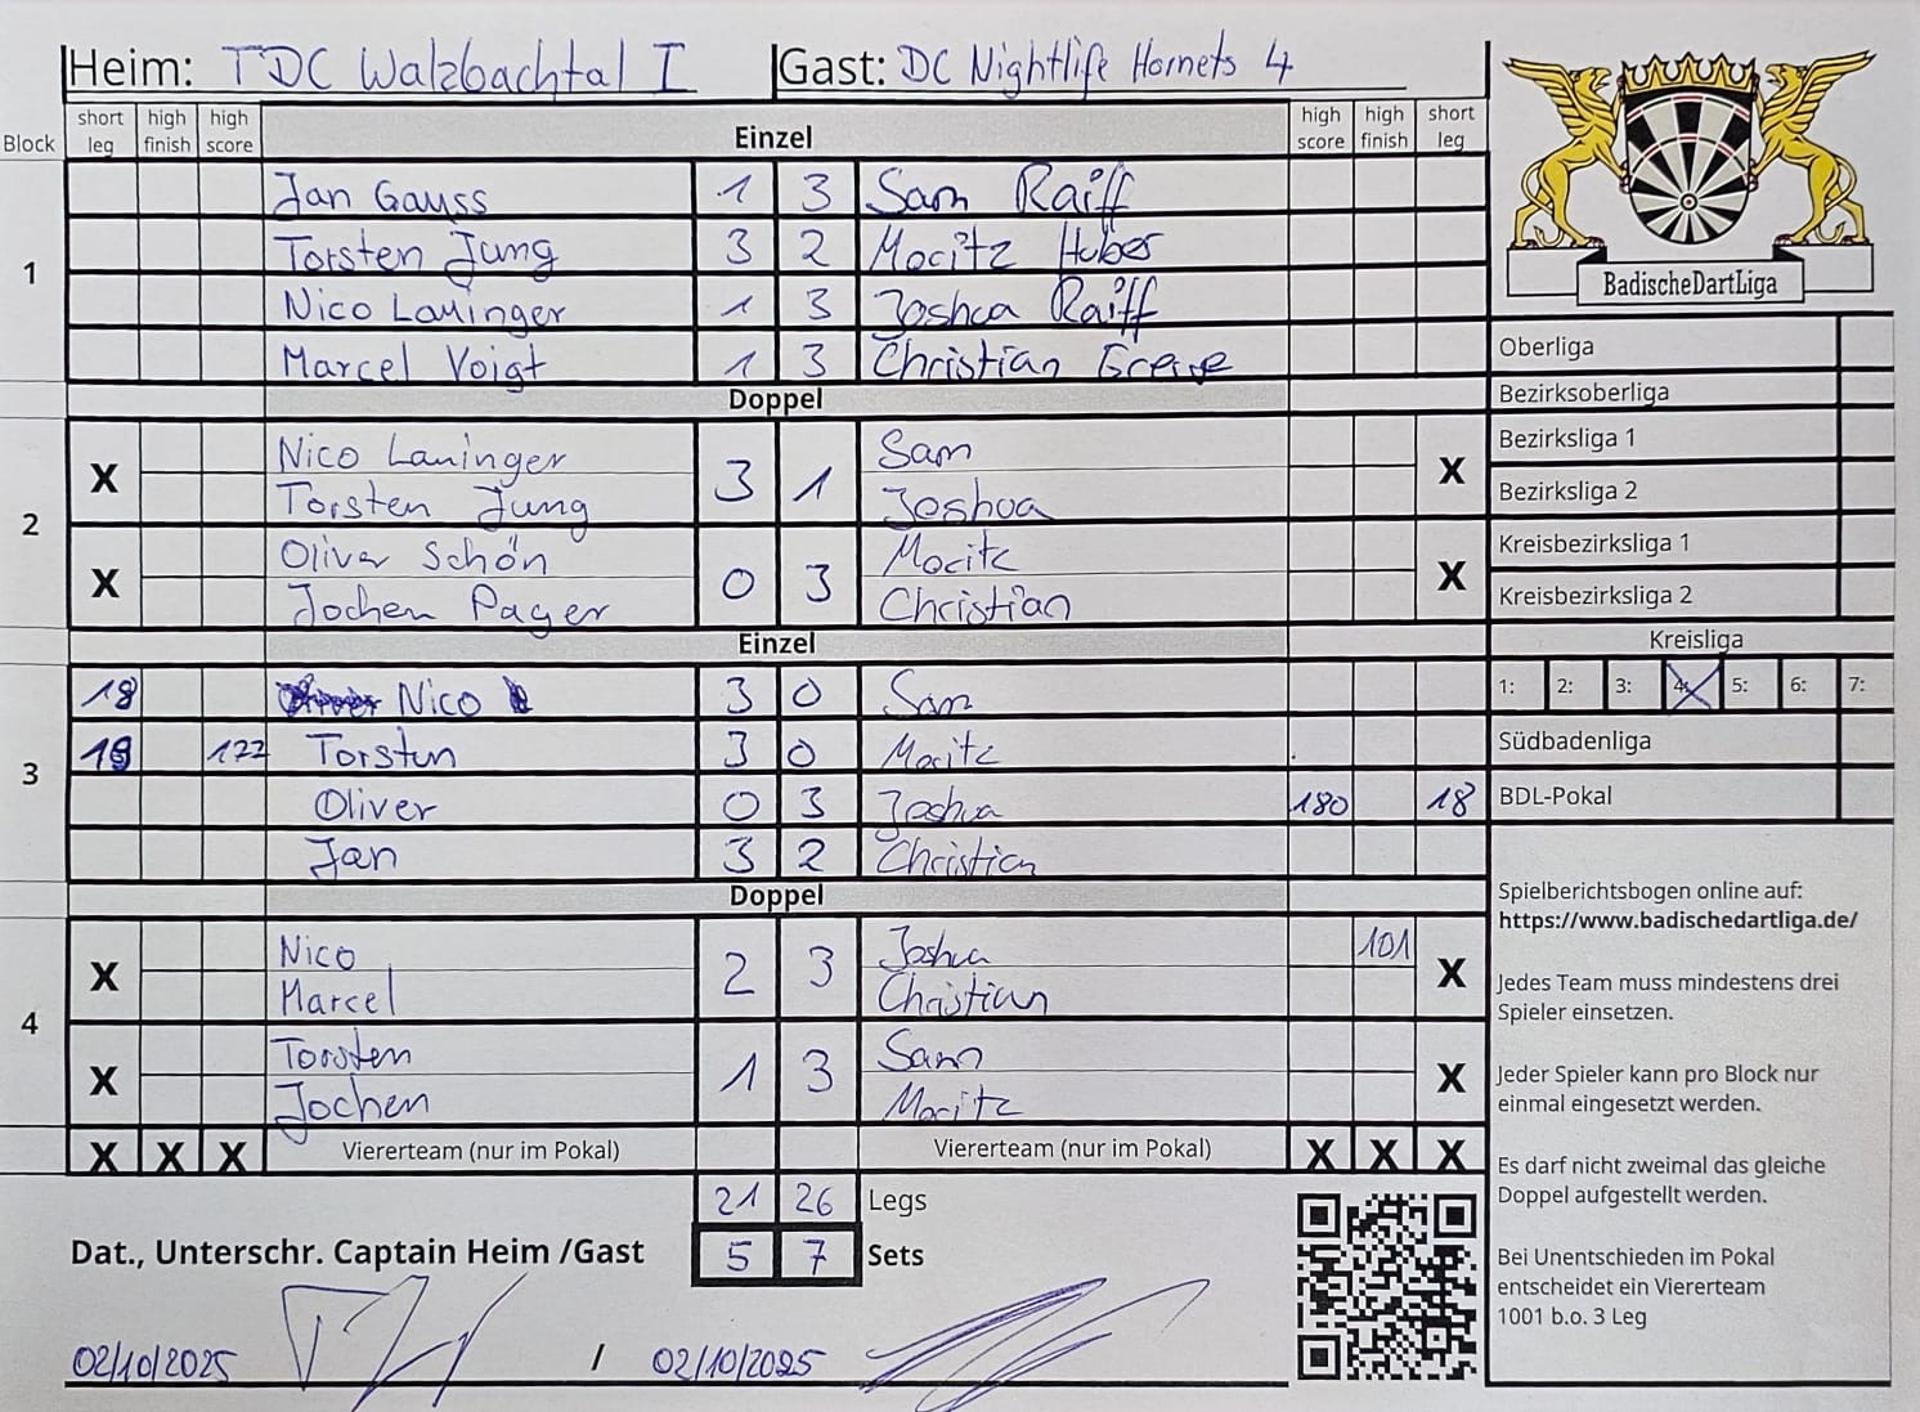 Heim: TDC Walzbachtal I Gast: DC Nightlife Hornets 4
Block short leg high finish high score Einzel high score high finish short leg
1
Jan Gauss 1 3 Sam Raiff
Torsten Jung 3 2 Moritz Huber
Nico Lauinger 1 3 Joshua Raiff
Marcel Voigt 1 3 Christian Greve
Doppel
2
X Nico Lauinger 3 1 Sam X
Torsten Jung Joshua
X Oliver Schön 0 3 Moritz X
Jochen Pager Christian
Einzel
3
18 Nico 3 0 Sam
18 177 Torsten 3 0 Moritz
Oliver 0 3 Joshua 180 18
Jan 3 2 Christian
Doppel
4
X Nico 2 3 Joshua 101 X
Marcel Christian
X Torsten 1 3 Sam X
Jochen Moritz
X X X Viererteam (nur im Pokal) Viererteam (nur im Pokal) X X X
21 26 Legs
Dat., Unterschr. Captain Heim /Gast 5 7 Sets
02/10/2025 / 02/10/2025
BadischeDartLiga
Oberliga
Bezirksoberliga
Bezirksliga 1
Bezirksliga 2
Kreisbezirksliga 1
Kreisbezirksliga 2
Kreisliga
1: 2: 3: 4: X 5: 6: 7:
Südbadenliga
BDL-Pokal
Spielberichtsbogen online auf:
https://www.badischedartliga.de/
Jedes Team muss mindestens drei
Spieler einsetzen.
Jeder Spieler kann pro Block nur
einmal eingesetzt werden.
Es darf nicht zweimal das gleiche
Doppel aufgestellt werden.
Bei Unentschieden im Pokal
entscheidet ein Viererteam
1001 b.o. 3 Leg